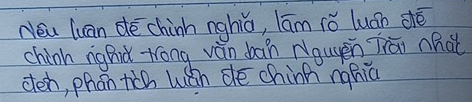 Nêu luận đề chính nghĩa, làm rõ luận đề
chính nghĩa trong văn bản Nguyễn Trãi nhất
định, phân tích luận đề chính nghĩa